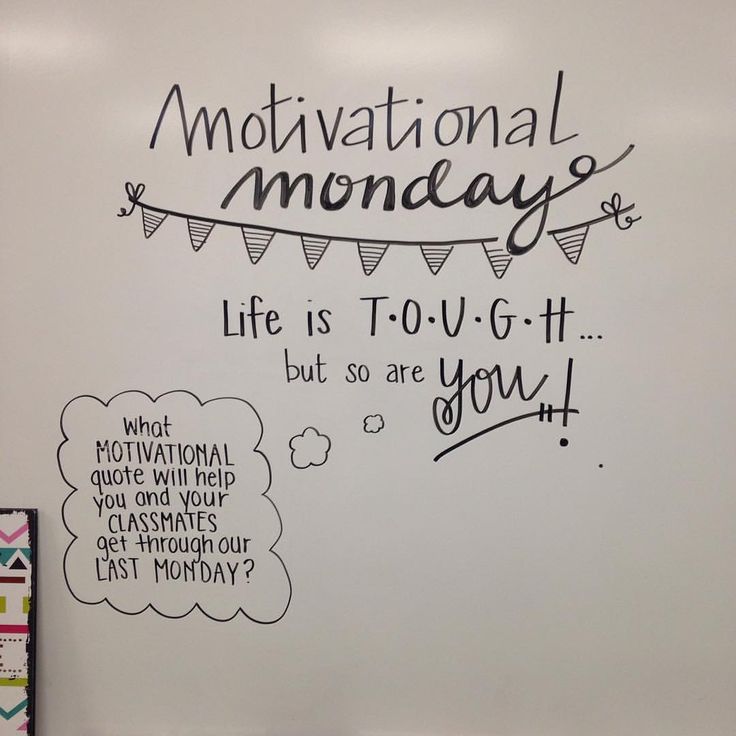 Motivational
monday
Life is T.O.U.G.H...
but so are you!
What
MOTIVATIONAL
quote will help
you and your
CLASSMATES
get through our
LAST MONDAY?